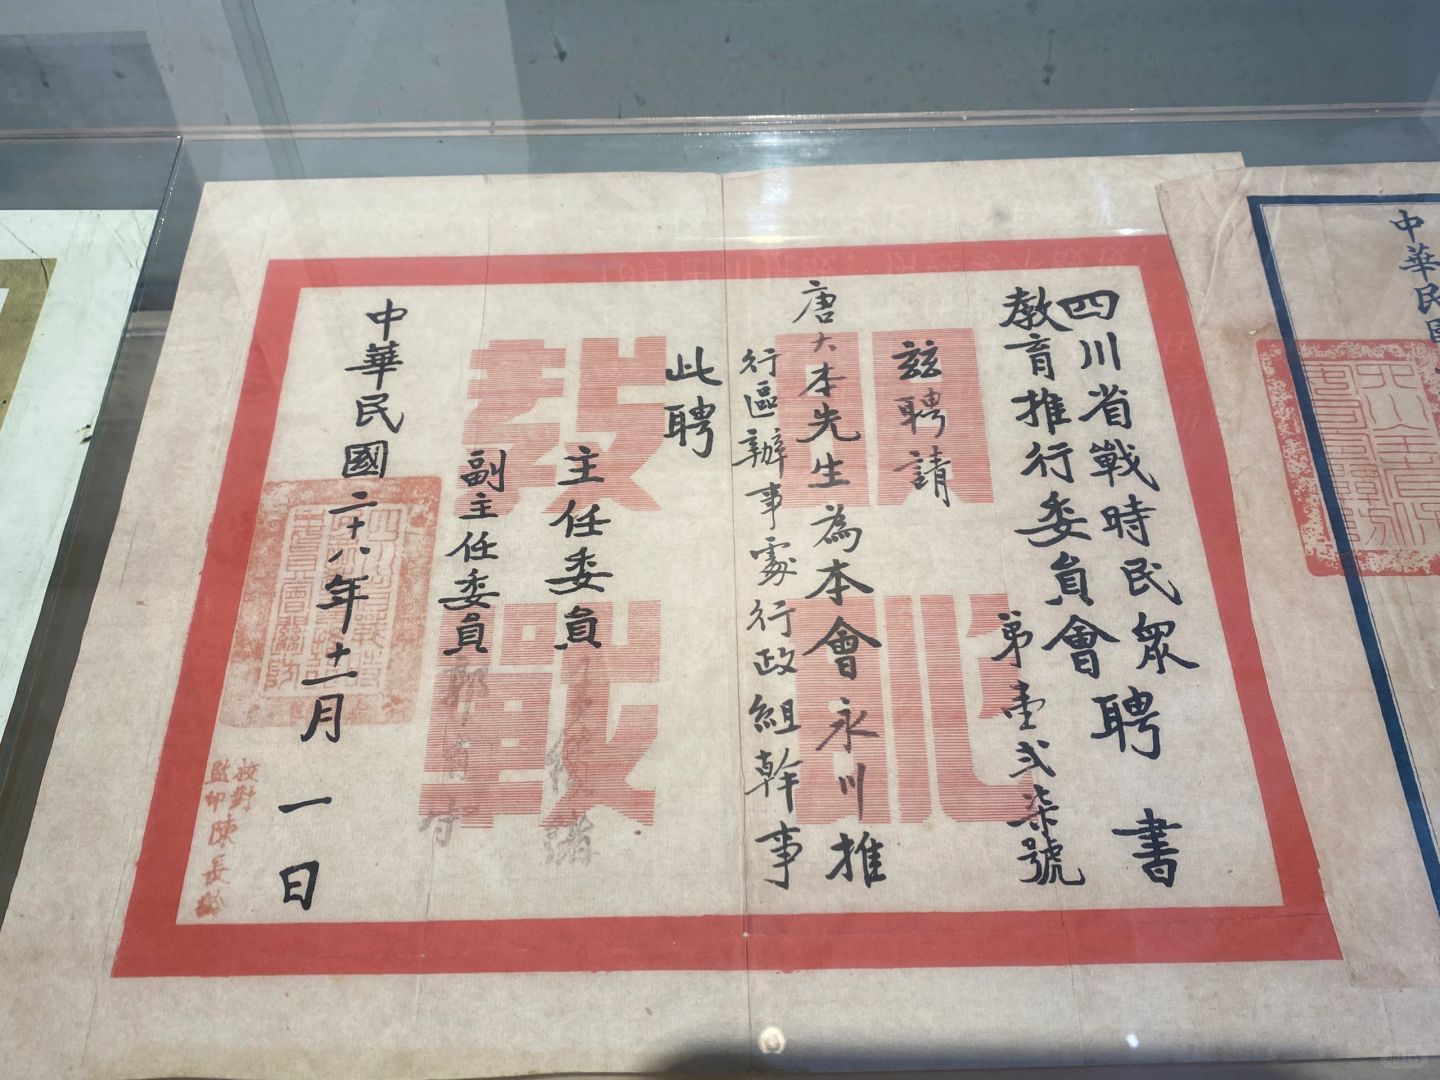 四川省戰時民眾
教育推行委員會聘書
第壹弍柒號
茲聘請
唐大本先生為本會永川推
行區辦事處行政組幹事
此聘
主任委員
副主任委員郭有守
中華民國二十八年十一月一日
校對
監印陳長
教戰
中華民國